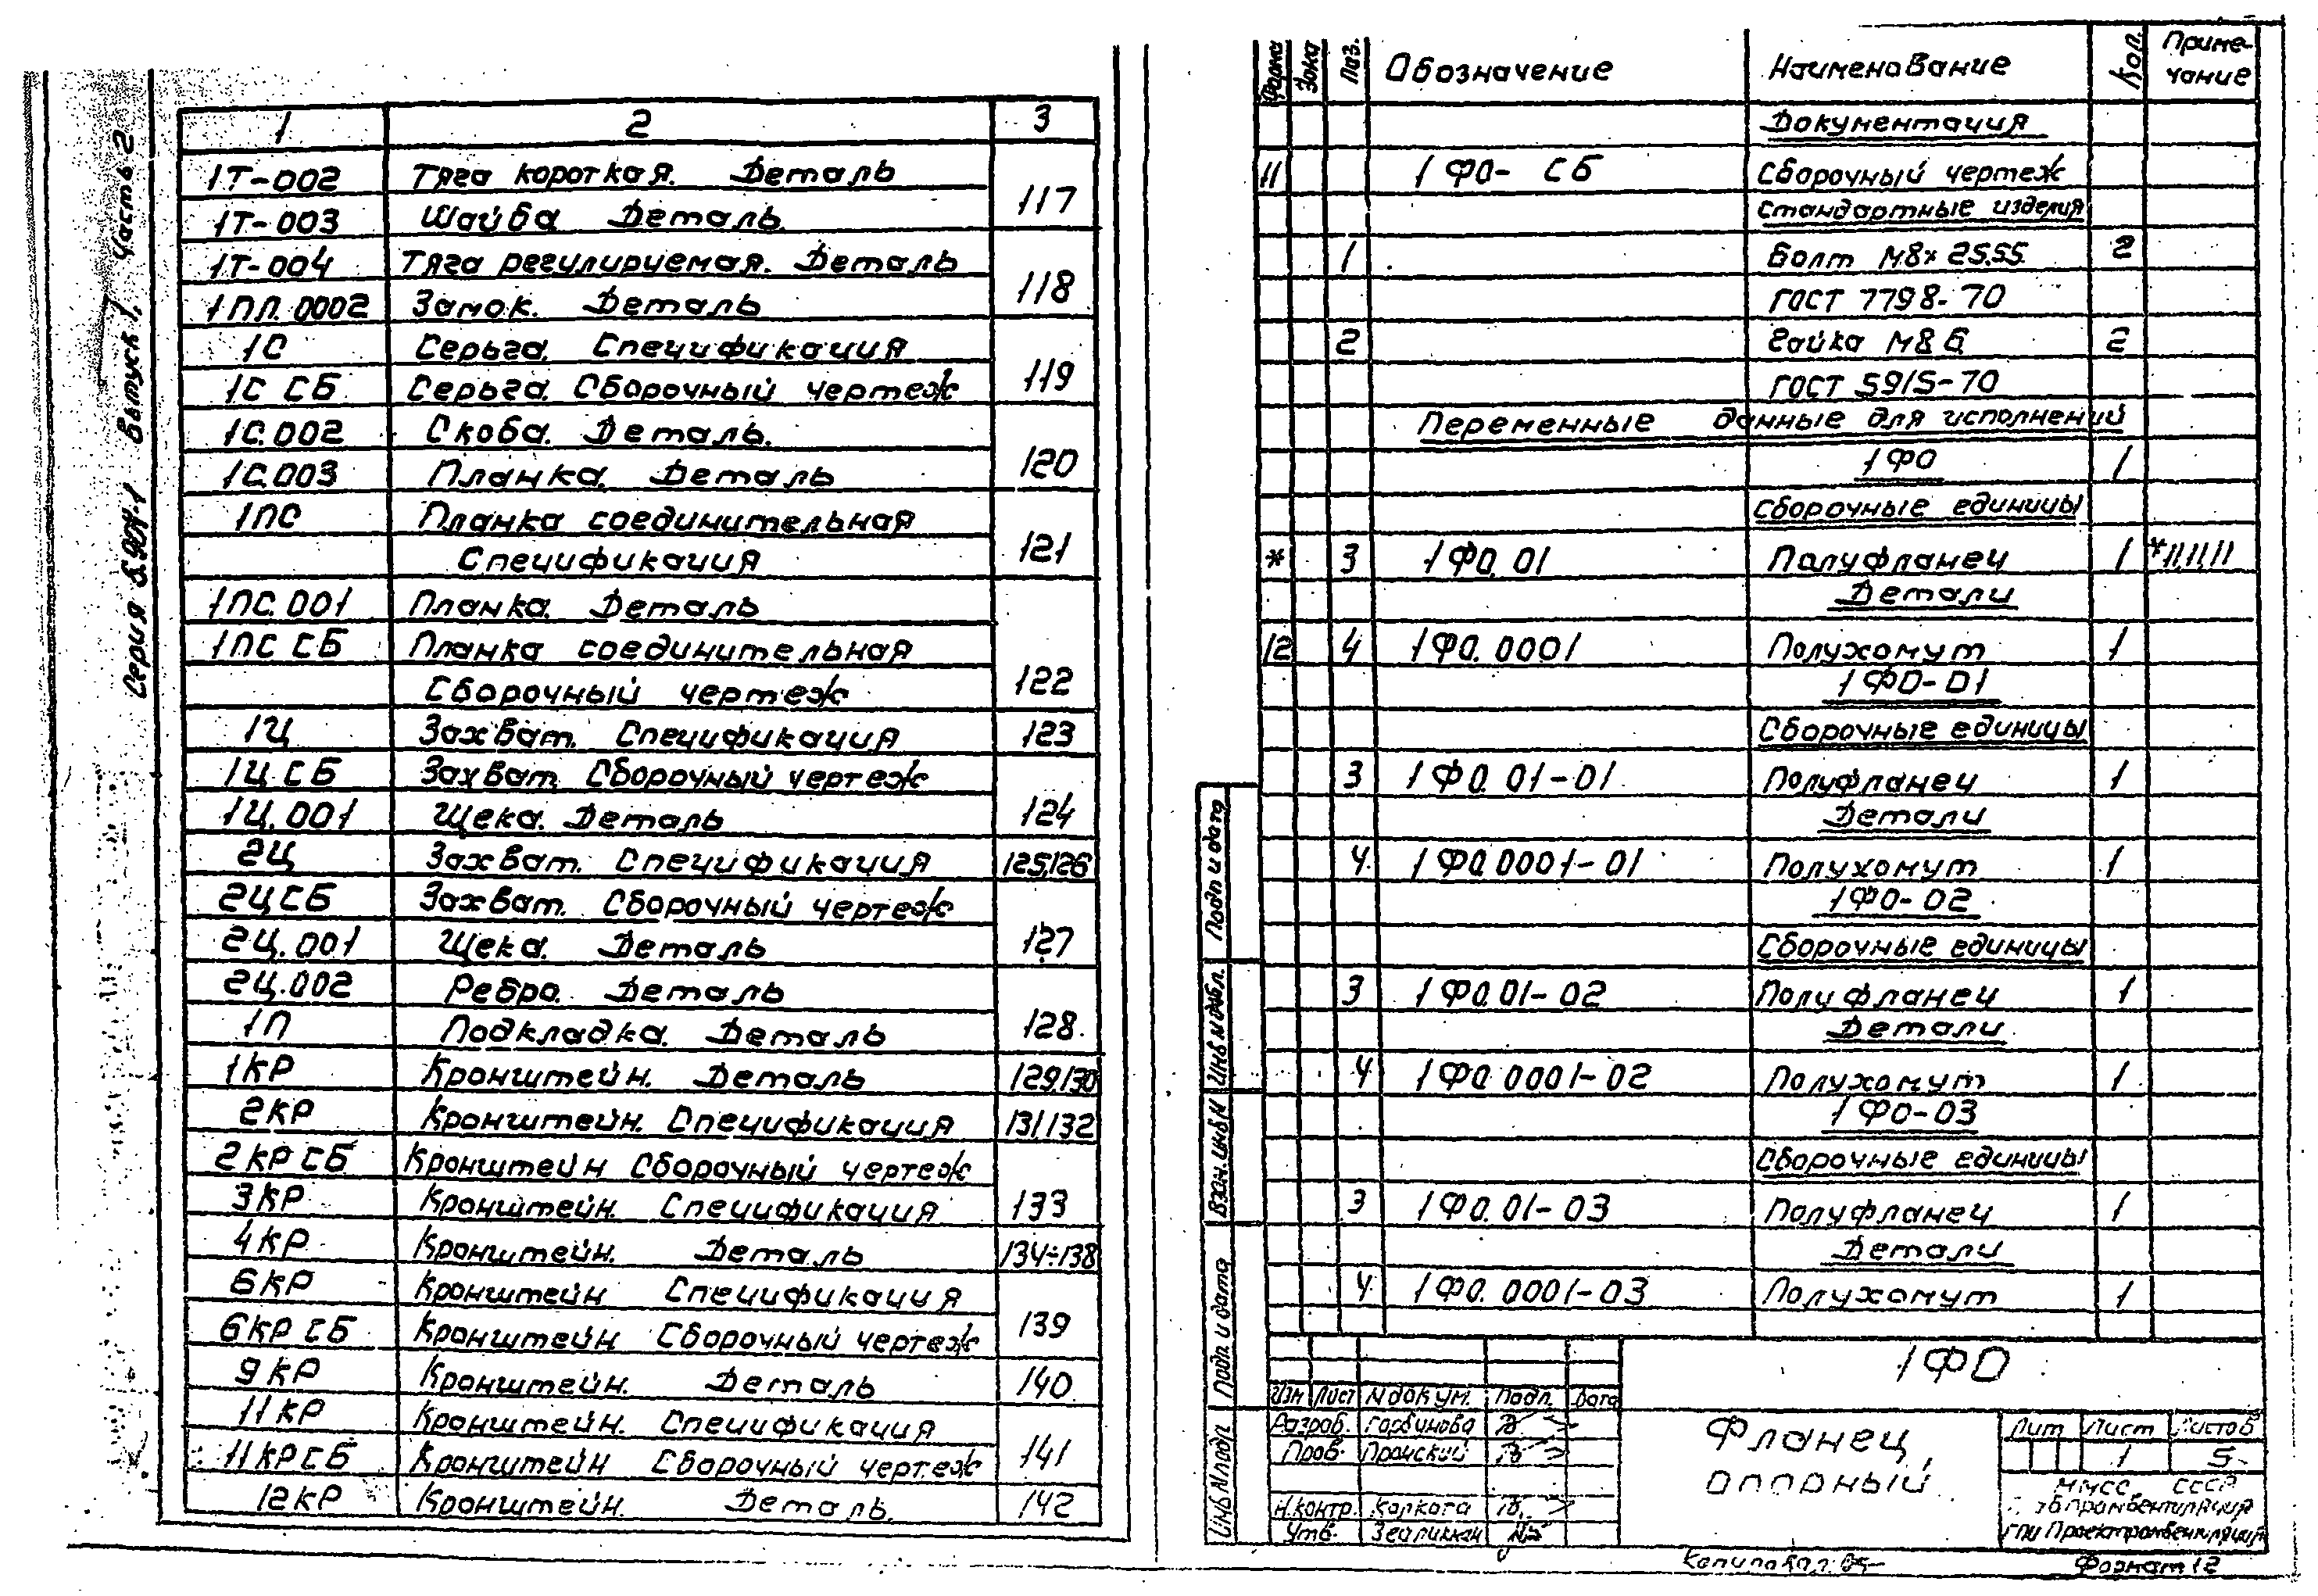 Серия 5.904-1 Выпуск 1. Часть 2
1 2 3
1Т-002 Тяга короткая. Деталь
117
1Т-003 Шайба Деталь
1Т-004 Тяга регулируемая. Деталь
118
1ПЛ.0002 Замок. Деталь
1С Серьга. Спецификация
119
1С СБ Серьга. Сборочный чертеж
1С.002 Скоба. Деталь.
120
1С.003 Планка. Деталь
1ПС Планка соединительная
121
Спецификация
1ПС.001 Планка. Деталь
1ПС СБ Планка соединительная
122
Сборочный чертеж
1Ц Захват. Спецификация 123
1Ц СБ Захват. Сборочный чертеж
124
1Ц.001 Щека. Деталь
2Ц Захват. Спецификация 125,126
2Ц СБ Захват. Сборочный чертеж
127
2Ц.001 Щека. Деталь
2Ц.002 Ребро. Деталь
128
1П Подкладка. Деталь
1КР Кронштейн. Деталь 129,130
2КР Кронштейн. Спецификация 131,132
2КР СБ Кронштейн Сборочный чертеж
133
3КР Кронштейн. Спецификация
4КР Кронштейн. Деталь 134÷138
6КР Кронштейн Спецификация
139
6КР СБ Кронштейн Сборочный чертеж
9КР Кронштейн. Деталь 140
11КР Кронштейн. Спецификация
141
11КР СБ Кронштейн Сборочный чертеж
12КР Кронштейн. Деталь. 142
Формат Зона Поз. Обозначение Наименование Кол. Приме-
чание
Документация
11 1ФО- СБ Сборочный чертеж
Стандартные изделия
1 Болт М8×25.55 2
ГОСТ 7798-70
2 Гайка М8 6 2
ГОСТ 5915-70
Переменные данные для исполнений
1ФО 1
Сборочные единицы
* 3 1ФО.01 Полуфланец 1 *11,11,11
Детали
12 4 1ФО.0001 Полухомут 1
1ФО-01
Сборочные единицы
3 1ФО.01-01 Полуфланец 1
Детали
4 1ФО.0001-01 Полухомут 1
1ФО-02
Сборочные единицы
3 1ФО.01-02 Полуфланец 1
Детали
4 1ФО.0001-02 Полухомут 1
1ФО-03
Сборочные единицы
3 1ФО.01-03 Полуфланец 1
Детали
4 1ФО.0001-03 Полухомут 1
Подп и дата
Инв.N дубл.
Взам.инв N
Подп. и дата
Инв N подл
1ФО
Изм Лист N докум. Подп. Дата
Разраб. Горбинова
Пров. Пронский
Н.контр. Колкота
Утв.
Фланец
опорный
Лит Лист Листов
1 5
ММСС СССР
Проектпромвентиляция
Копировал:
Формат 12